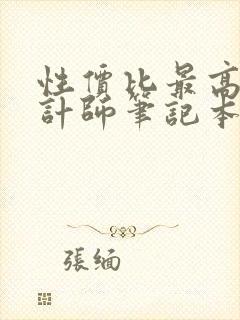 性價比最高
計師筆記本
張緬